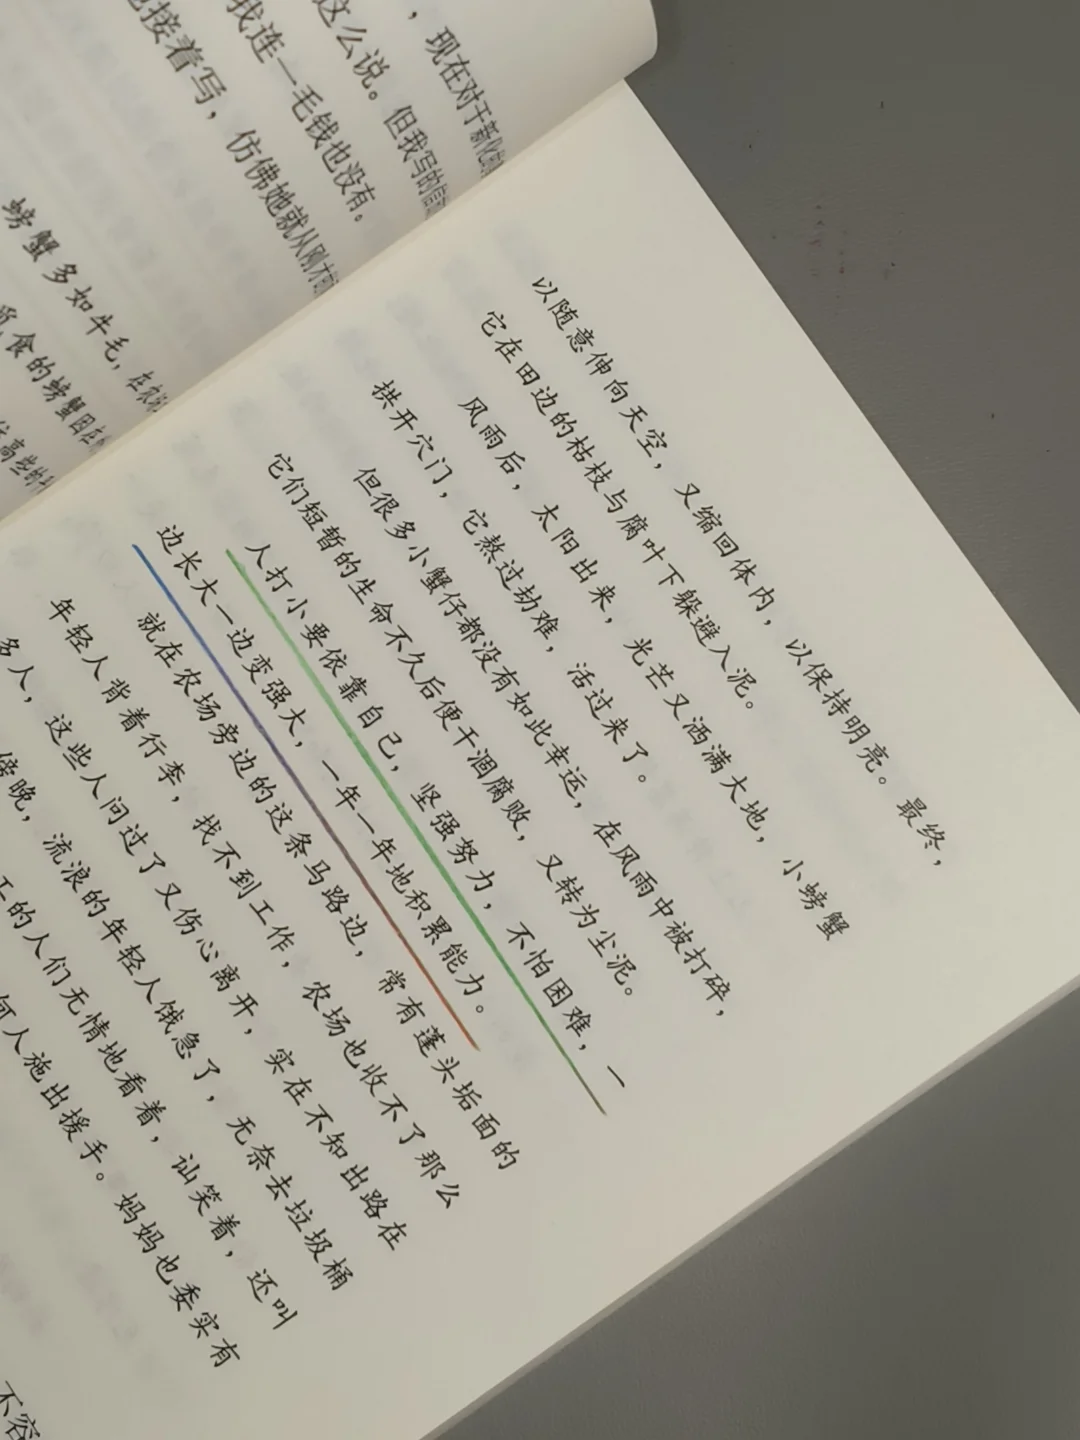 ，现在对于新化
这么说。但我写的信
我连一毛钱也没有。
接着写，仿佛她就从刚才
螃蟹多如牛毛，在农
食的螃蟹因在
高些的
以随意伸向天空，又缩回体内，以保持明亮。最终，
它在田边的枯枝与腐叶下躲避入泥。
风雨后，太阳出来，光芒又洒满大地，小螃蟹
拱开穴门，它熬过劫难，活过来了。
但很多小蟹仔都没有如此幸运，在风雨中被打碎，
它们短暂的生命不久后便干涸腐败，又转为尘泥。
人打小要依靠自己，坚强努力，不怕困难，一
边长大一边变强大，一年一年地积累能力。
就在农场旁边的这条马路边，常有蓬头垢面的
年轻人背着行李，找不到工作，农场也收不了那么
多人，这些人问过了又伤心离开，实在不知出路在
傍晚，流浪的年轻人饿急了，无奈去垃圾桶
的人们无情地看着，讪笑着，还叫
何人施出援手。妈妈也委实有
不容